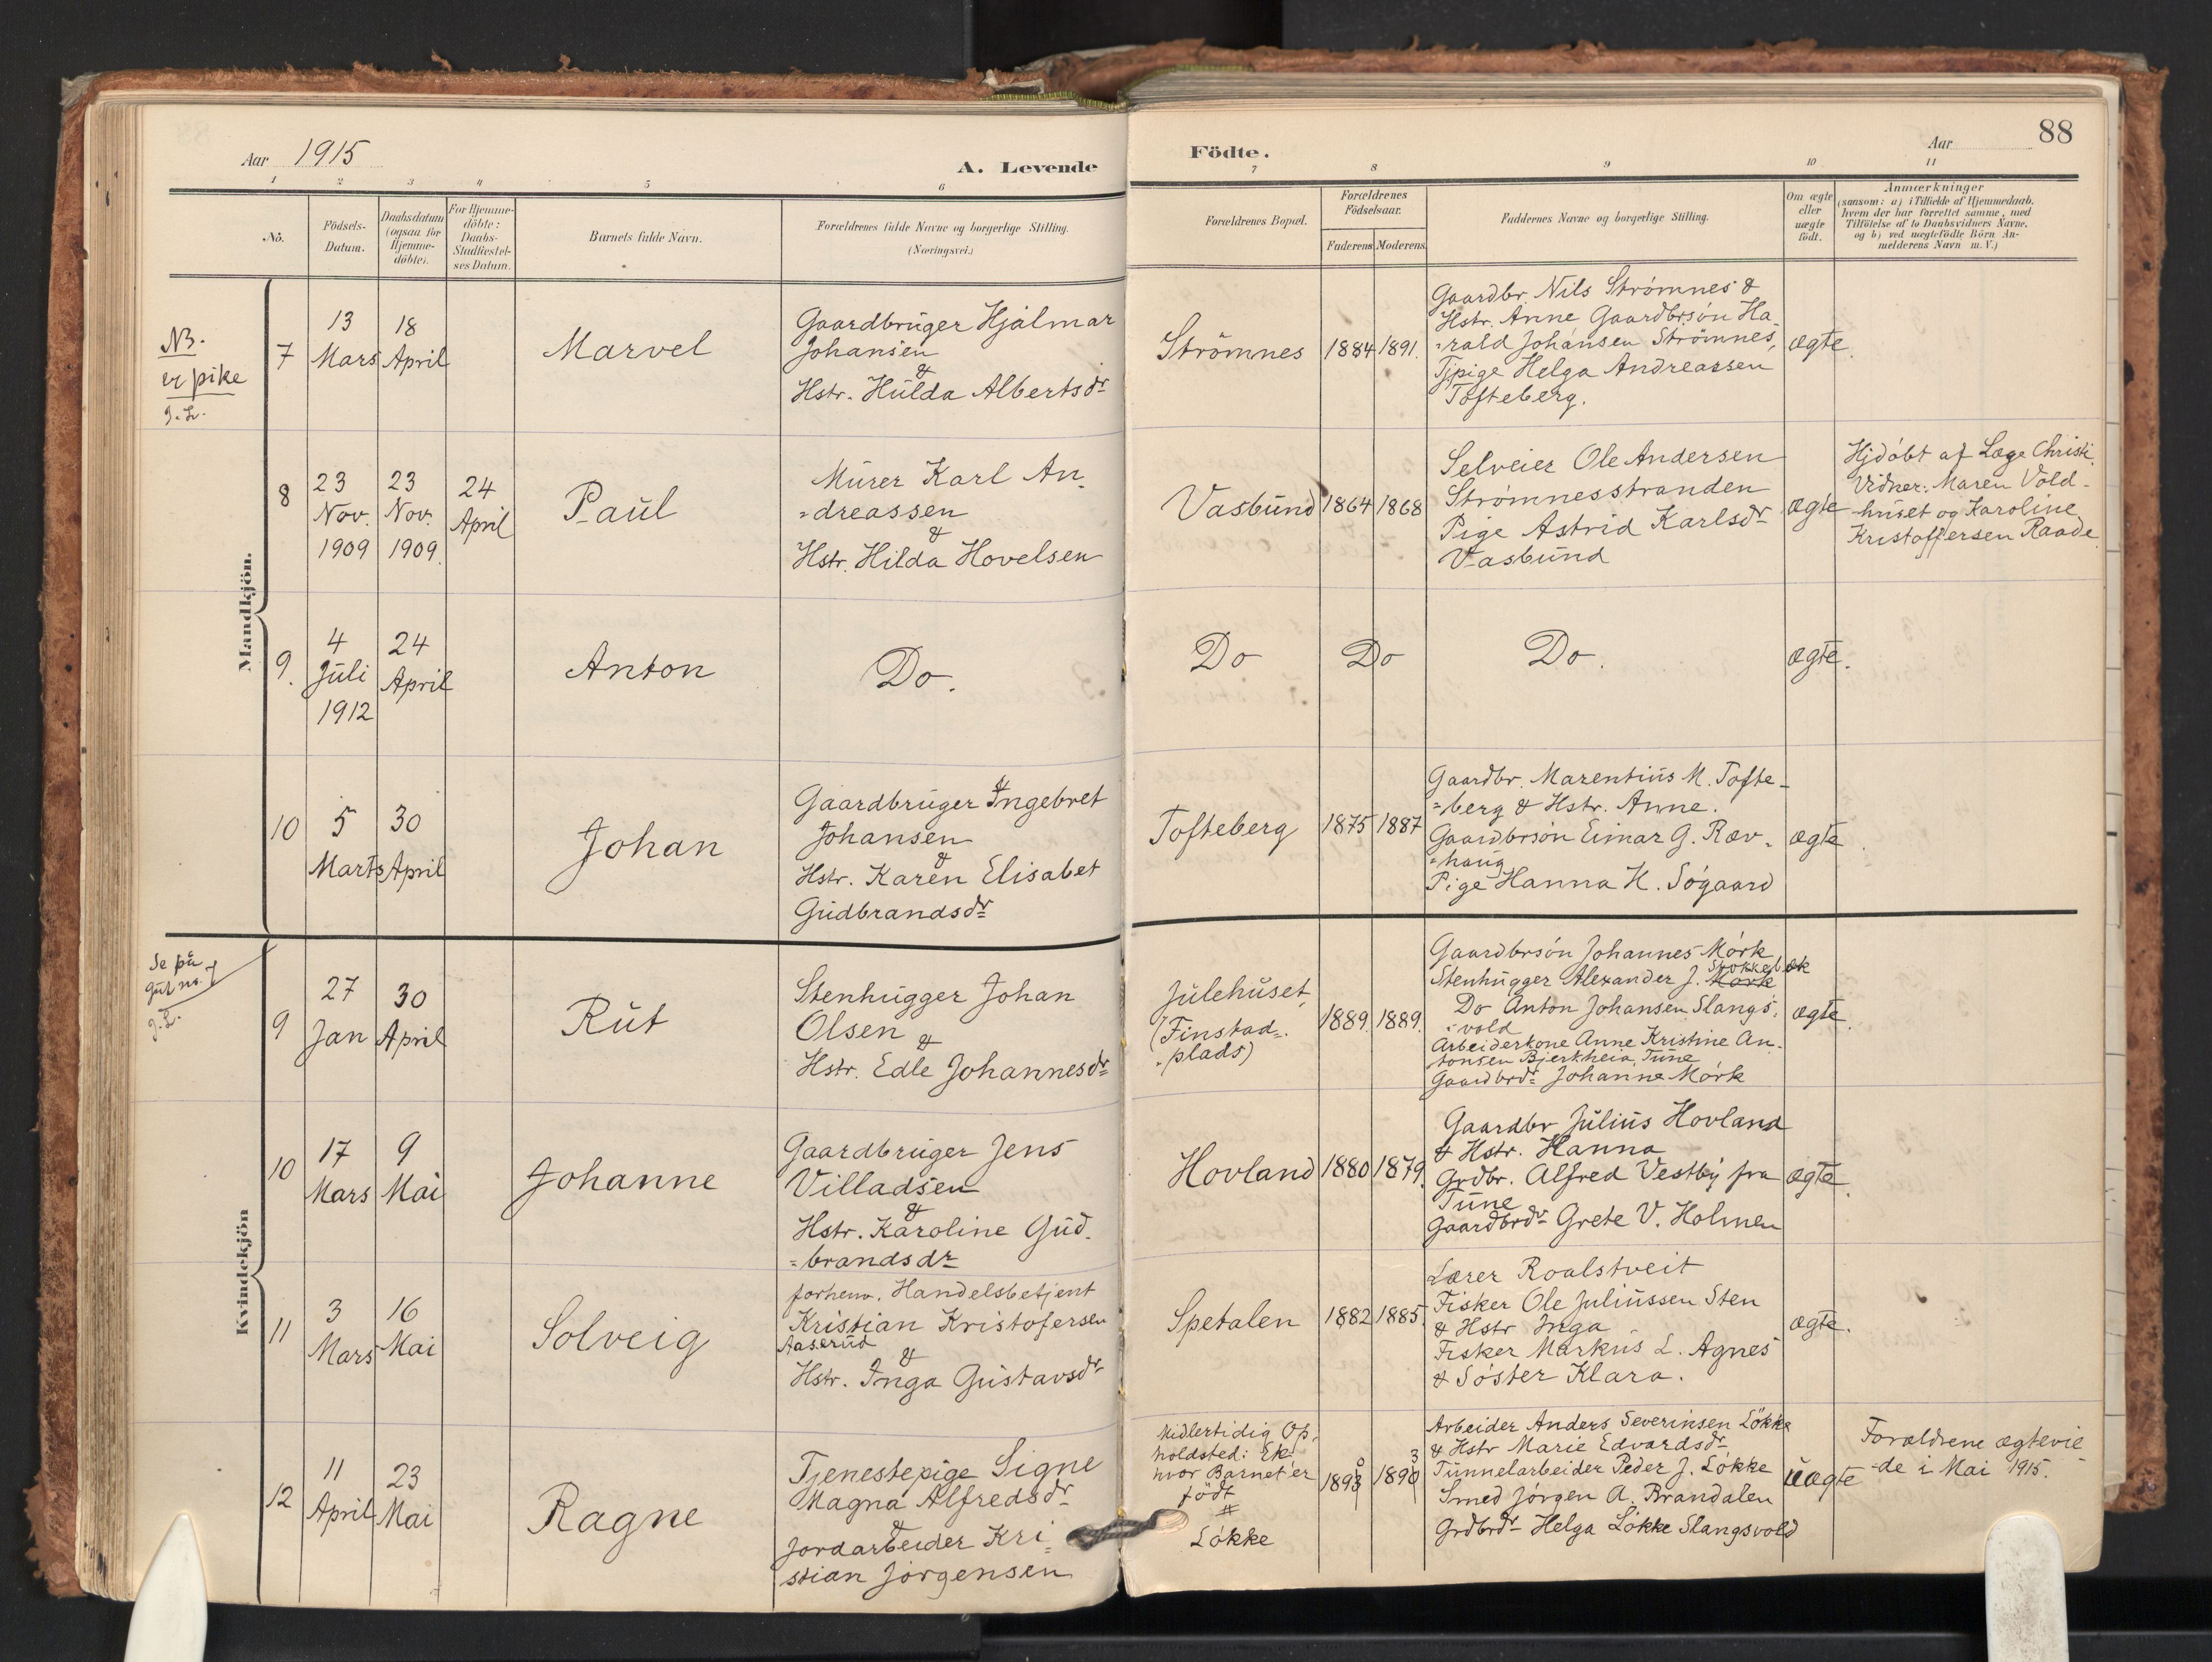 88
Aar 1915
A. Levende
Födte.
Aar
1 2 3 4 5 6 7 8 9 10 11
No.
Födsels-
Datum.
Daabsdatum
(ogsaa för
Hjemme-
döbte).
For Hjemme-
döbte:
Daabs-
Stadfæstel-
ses Datum.
Barnets fulde Navn.
Forældrenes fulde Navne og borgerlige Stilling.
(Næringsvei.)
Forældrenes Bopæl.
Forældrenes
Födselsaar.
Faderens Moderens.
Faddernes Navne og borgerlige Stilling.
Om ægte
eller
uægte
födt.
Anmærkninger
(saasom: a) i Tilfælde af Hjemmedaab,
hvem der har forrettet samme, med
Tilföielse af to Daabsvidners Navne,
og b) ved uægtefödte Börn An-
melderens Navn m.V.)
Mandkjön.
NB.
er pike
J. Lr.
7
13
Mars
18
April
Marvel
Gaardbruger Hjalmar
Johansen
&
Hstr. Hulda Albertsdr
Strömnes
1884 1891.
Gaardbr. Nils Strömnes &
Hstr. Anne Gaardbrsön Ha
-rald Johansen Strömnes,
Tjpige Helga Andreassen
Tofteberg.
ægte.
8
23
Nov.
1909
23
Nov.
1909.
24
April
Paul
Murer Karl An-
-dreassen
&
Hstr. Hilda Hovelsen
Vasbund
1864 1868
Selveier Ole Andersen
Strömnesstranden
Pige Astrid Karlsdr
Vasbund
ægte
Hjdöbt af Læge Christi.
Vidner: Maren Vold-
-huset og Karoline
Kristoffersen Raade.
9.
4
Juli
1912
24
April
Anton
Do.
Do
Do
Do.
ægte.
10
5
Marts
30
April
Johan
Gaardbruger Ingebret
Johansen
&
Hstr. Karen Elisabet
Gudbrandsdr
Tofteberg
1875 1887
Gaardbr. Marentius M. Tofte-
-berg & Hstr. Anne.
Gaardbrsön Einar G. Ræv-
-haug
Pige Hanna H. Sögaard
ægte.
Kvindekjön
Se på
gut no. 7
J. Lr.
9
27
Jan
30
April
Rut
Stenhugger Johan
Olsen
&
Hstr. Edle Johannesdr
Julehuset
(Finstad-
-plads)
1889. 1889.
Gaardbrsön Johannes Mörk
Stenhugger Alexander J. Mörk Stokkebæk
Do Anton Johansen Slangs-
-vold
Arbeiderkone Anne Kristine An-
tonsen Bjerkheia, Tune
Gaardbrdr Johanne Mörk
ægte.
10
17
Mars
9
Mai
Johanne
Gaardbruger Jens
Villadsen
&
Hstr. Karoline Gud-
-brandsdr
Hovland
1880 1879.
Gaardbr Julius Hovland
& Hstr. Hanna
Grdbr. Alfred Vestby fra
Tune
Gaardbrdr Grete V. Holmen
ægte.
11
3
Mars
16
Mai
Solveig
forhenv. Handelsbetjent
Kristian Kristofersen
Aaserud
&
Hstr. Inga Gustavsdr
Spetalen
1882 1885.
Lærer Roalstveit
Fisker Ole Juliussen Sten
& Hstr Inga
Fisker Markus L. Agnes
& Söster Klara.
ægte.
12
11
April
23
Mai
Ragne
Tjenestepige Signe
Magna Alfredsdr
&
Jordarbeider Kri-
stian Jörgensen
Midlertidig Op-
holdsted: Ek
hvor Barnet er
födt
#
Lökke
1893 0
1890 3
Arbeider Anders Severinsen Lökke
& Hstr Marie Edvardsdr
Tunnelarbeider Peder J. Lökke
Smed Jörgen A. Brandalen
Grdbrdr Helga Lökke Slangsvold
uægte
Forældrene ægtevie
-de i Mai 1915.